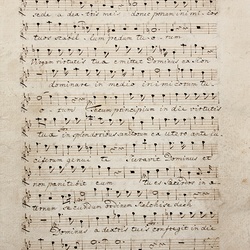 sede a dextris meis donec ponam inimicos
tuos scabellum pedum tuorum
Virgam virtutis tuae emittet Dominus ex Sion
dominare in medio inimicorum tuorum
tecum principium in die virtutis
tuae in splendoribus sanctorum ex utero ante lu
ciferum genui te juravit Dominus et
non paenitebit eum tu es sacerdos in ae
ternum secundum ordinem Melchisedech
Dominus a dextris tuis confregit in die